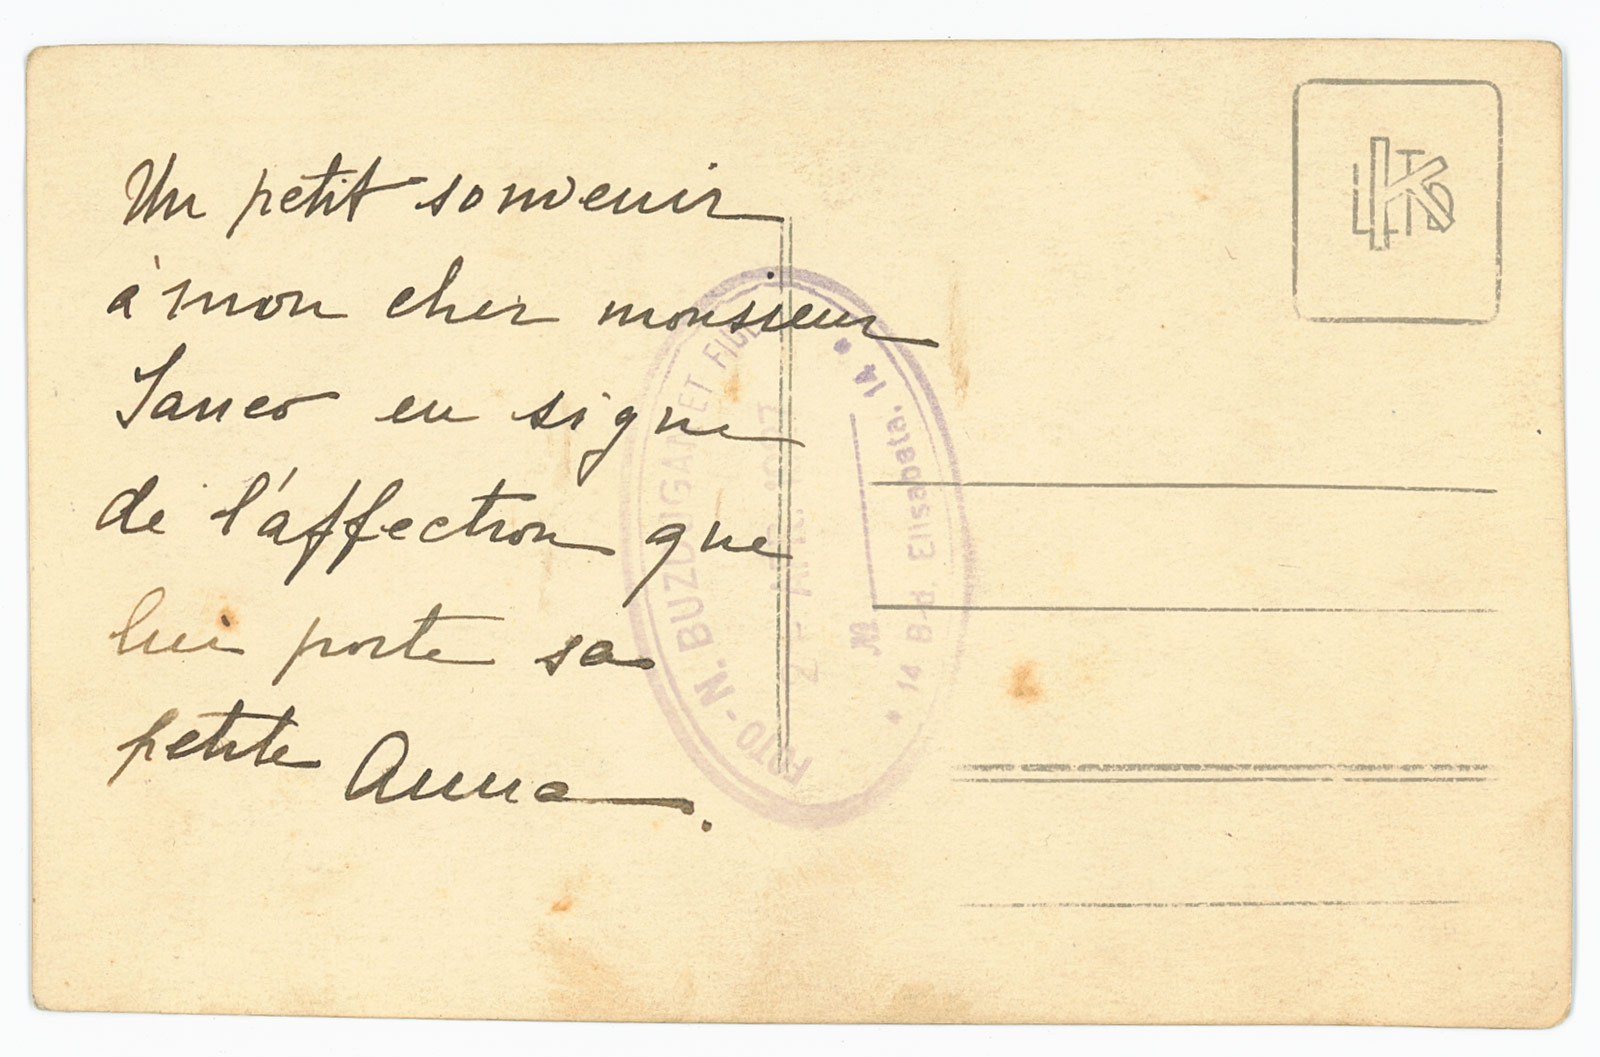 Un petit souvenir
à mon cher monsieur
Ianco en signe
de l'affection que
lui porte sa
petite Anna.
FOTO - N. BUZDUGAN ET FIUL
APR. 1927
№
* 14 B-d. Elisabeta, 14 *